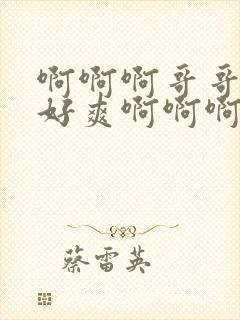 啊啊啊哥哥
好爽啊啊啊
蔡雷英